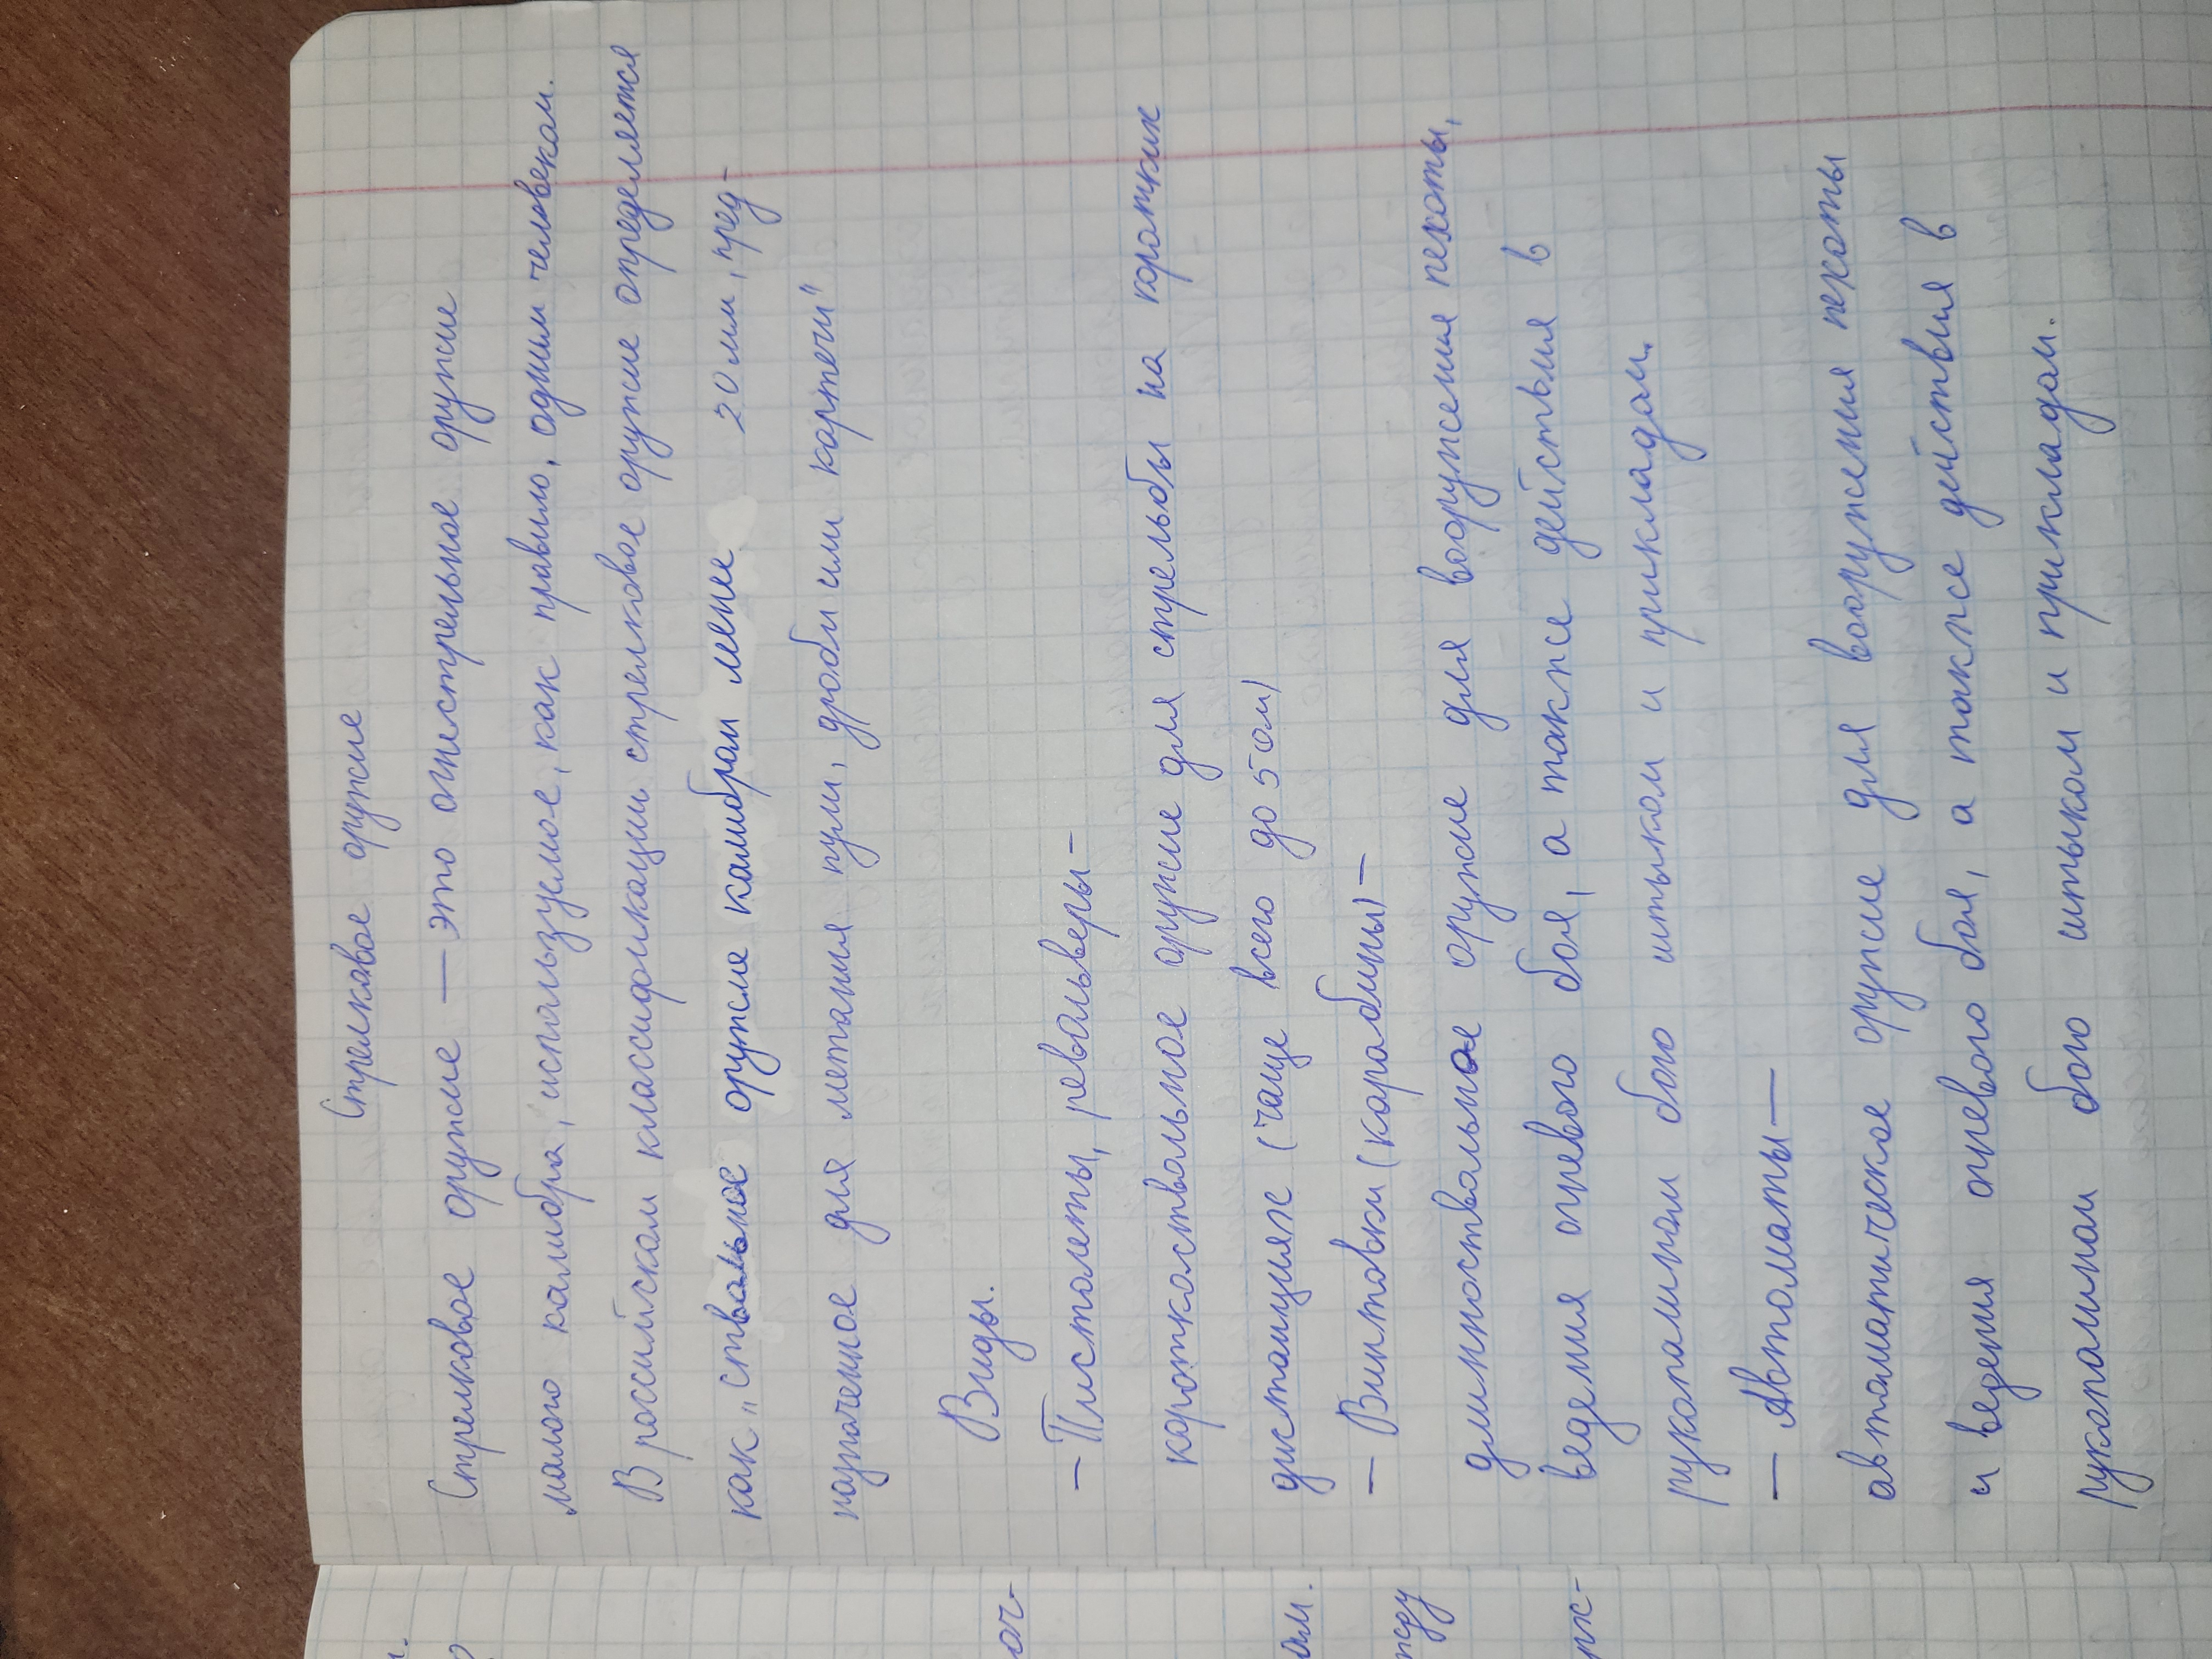 Стрелковое оружие
Стрелковое оружие — это огнестрельное оружие
малого калибра, используемое, как правило, одним человеком.
В российском классификации стрелковое оружие определяется
как „ствольное оружие калибром менее 20 мм, пред-
назначенное для метания пули, дроби или картечи"
Виды.
– Пистолеты, револьверы –
короткоствольное оружие для стрельбы на коротких
дистанциях (чаще всего до 50м)
– Винтовки (карабины) –
длинноствольное оружие для вооружения пехоты,
ведения огневого боя, а также действия в
рукопашном бою штыком и прикладом.
— Автоматы —
автоматическое оружие для вооружения пехоты
и ведения огневого боя, а также действия в
рукопашном бою штыком и прикладом.
оч-
ам.
жду